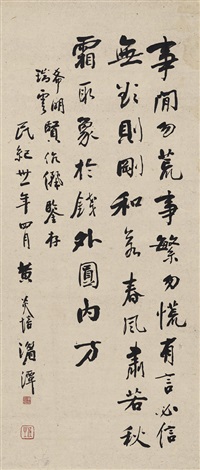 事閒勿荒事繁勿慌有言必信
無欲則剛和若春風肅若秋
霜取象於錢外圓內方
希明
瑞雲賢伉儷鑒存
民紀卅一年四月黃炎培潭